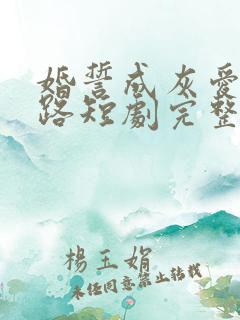 婚誓成灰愛
路短劇完整
楊玉娟
未经同意禁止转载